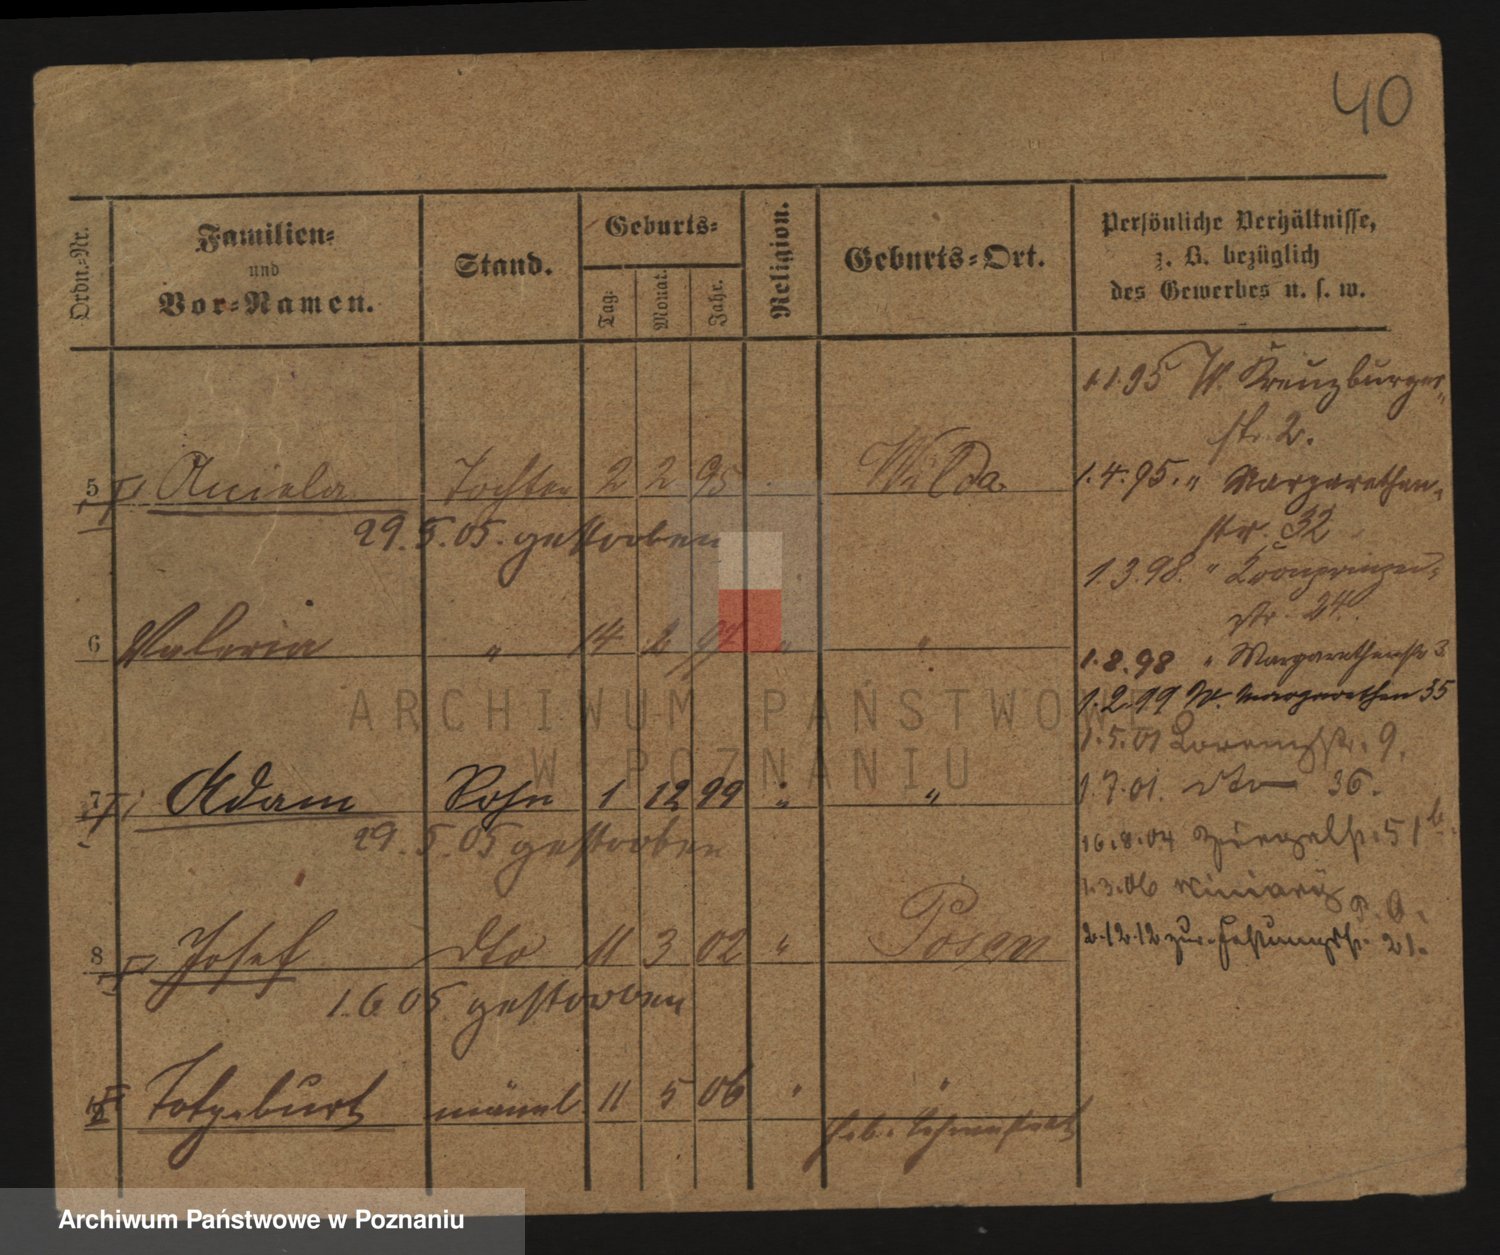 40
Ordn.-Nr.
Familien-
und
Vor-Namen.
Stand.
Geburts-
Tag.
Monat.
Jahr.
Religion.
Geburts-Ort.
Persönliche Verhältnisse,
z. B. bezüglich
des Gewerbes u. s. w.
1.1.95 W. Kreuzburger-
str. 2.
5 Aniela Tochter 2 2 95 Wilda
1.4.95. " Margarethen-
29.5.05. gestorben
str. 32
1.3.98. " Kronprinzen-
str. 24.
6 Valeria " 14 97 " "
1.8.98 " Margarethenstr 3
1.2.99 W. Margarethen 35
1.5.01 9.
1.7.01. dto 36.
7 Adam Sohn 1 12 99 " "
29.5.05 gestorben
16.8.04 51
1.3.06 Winiary
8 Josef dto 11 3 02 " Posen
2.12.12 zur. Festungsstr. 21.
1.6.05 gestorben
Totgeburt männl. 11 5 06 " "
ARCHIWUM PAŃSTWOWE
W POZNANIU
Archiwum Państwowe w Poznaniu